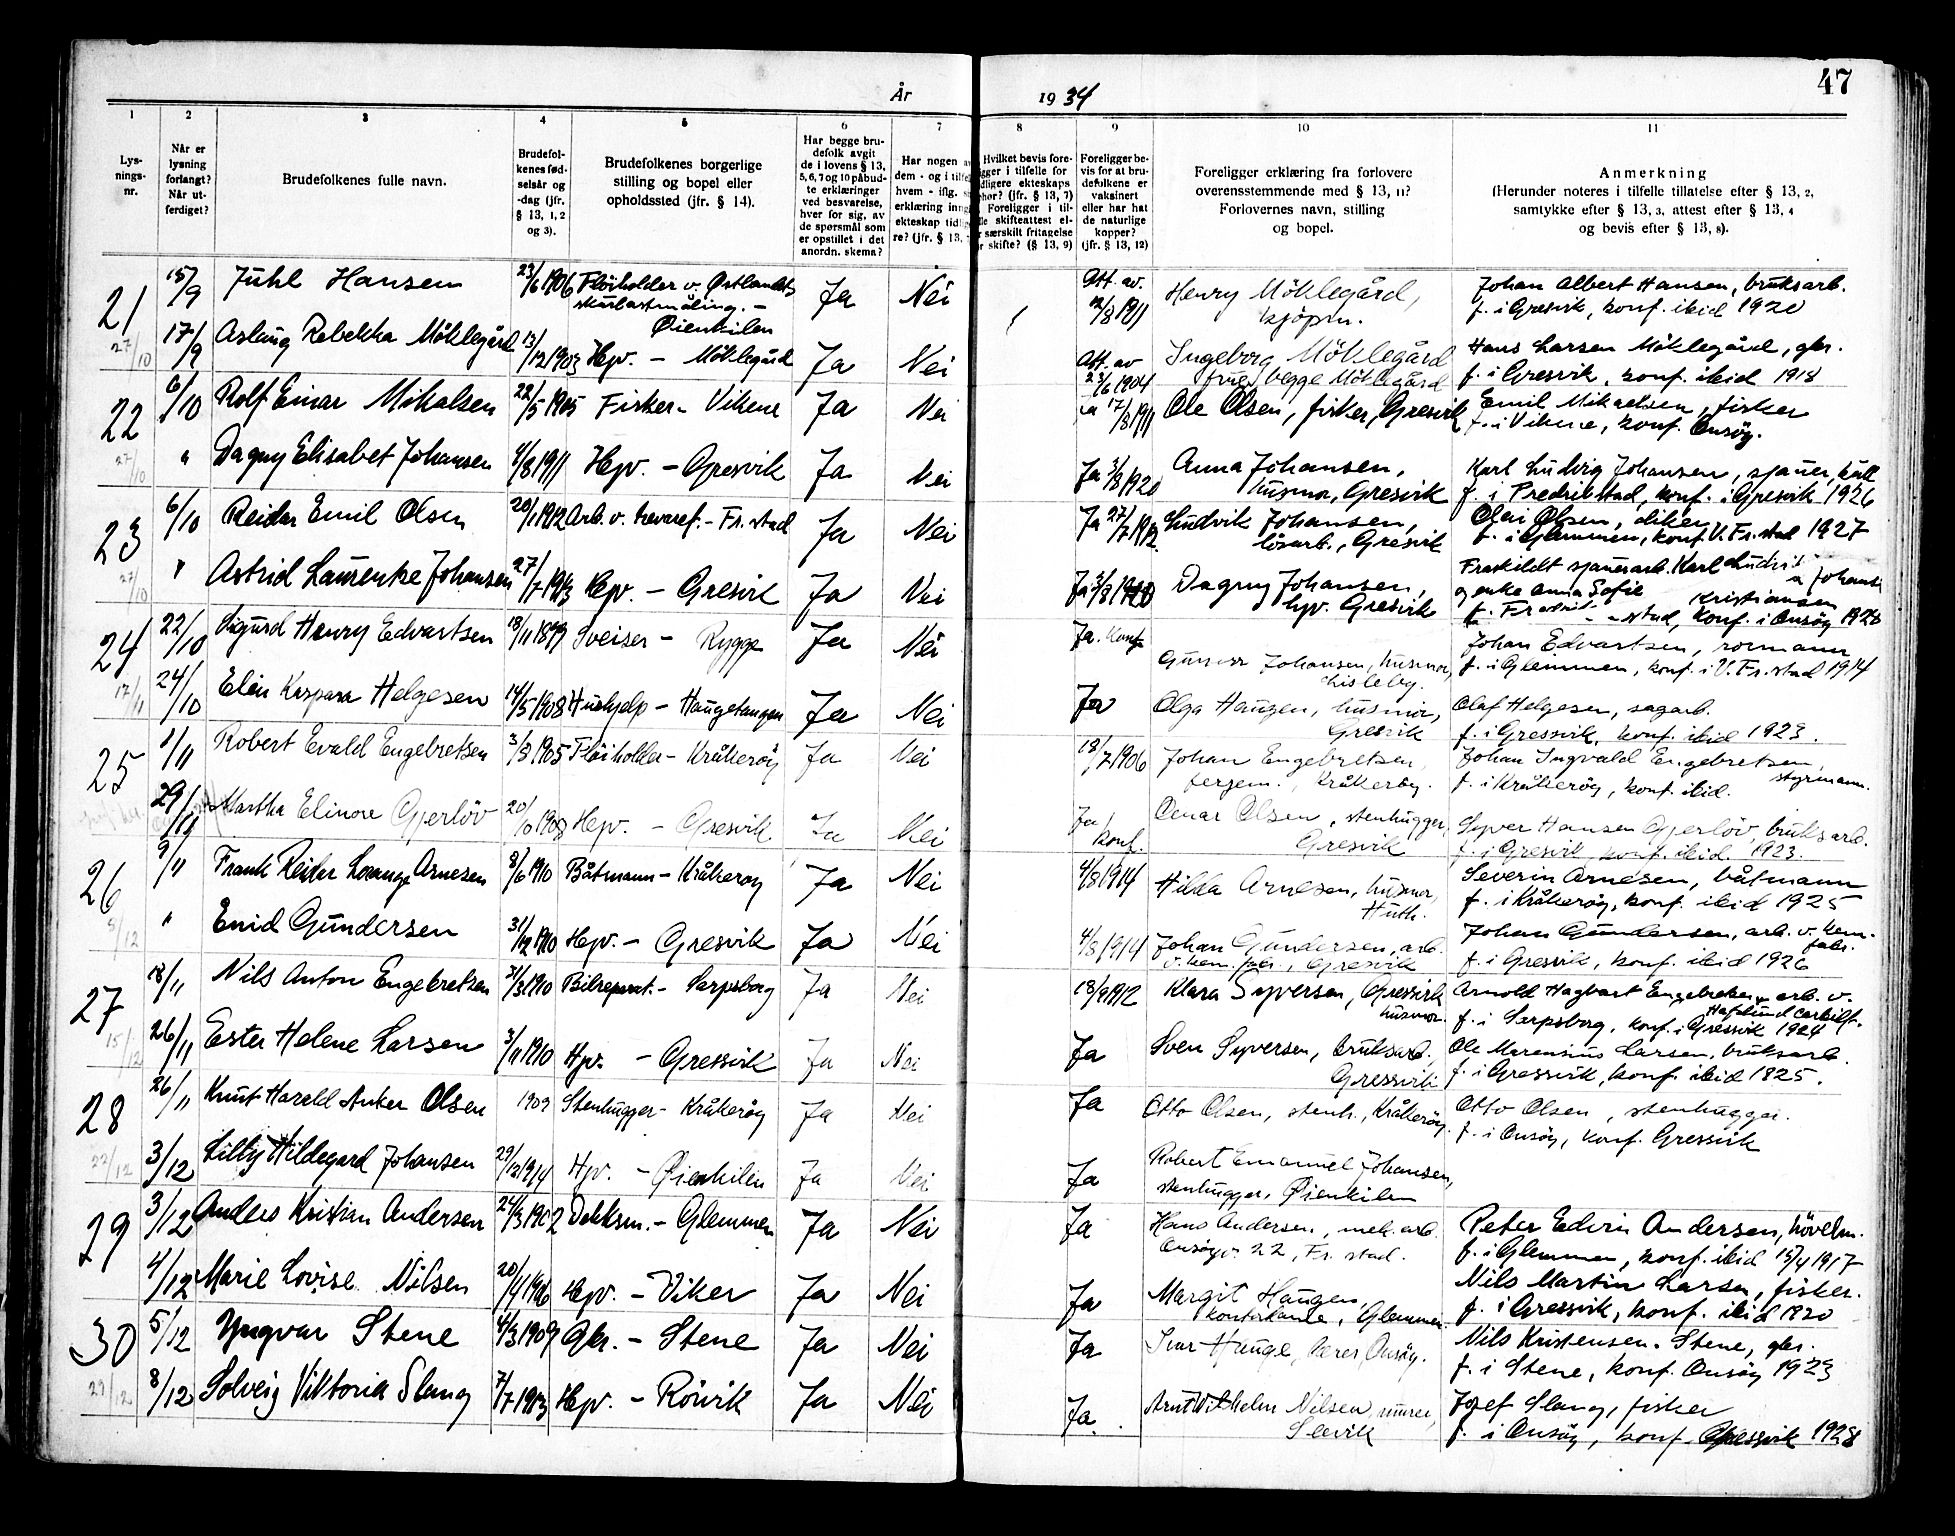 47
År 1934
1
2
3
4
5
6
7
8
9
10
11
Lys-
nings-
nr.
Når er
lysning
forlangt?
Når ut-
ferdiget?
Brudefolkenes fulle navn.
Brudefol-
kenes fød-
selsår og
-dag (jfr.
§ 13, 1, 2
og 3).
Brudefolkenes borgerlige
stilling og bopel eller
opholdssted (jfr. § 14).
Har begge bru-
defolk avgit
de i lovens § 13,
5, 6, 7 og 10 påbud-
te erklæringer
ved besvarelse,
hver for sig, av
de spørsmål som
er opstillet i det
anordn. skema?
Har nogen av
dem - og i tilfel
hvem - iflg. s
erklæring inng
ekteskap tidlig
re? (jfr. § 13,
Hvilket bevis fore-
gger i tilfelle for
dligere ekteskaps
hør? (jfr. § 13, 7)
Foreligger i til-
lle skifteattest el-
r særskilt fritagelse
r skifte? (§ 13, 9)
Foreligger be-
vis for at bru-
defolkene er
vaksinert
eller har hat
de naturlige
kopper?
(jfr. § 13, 12)
Foreligger erklæring fra forlovere
overensstemmende med § 13, 11?
Forlovernes navn, stilling
og bopel.
Anmerkning
(Herunder noteres i tilfelle tillatelse efter § 13, 2,
samtykke efter § 13, 3, attest efter § 13, 4
og bevis efter § 13, 8).
21 15/9 Juhl Hansen 23/6 1906 Fløiholder v. Østlandets
skurlastmåling. -
Øienkilen Ja Nei Att. av 12/8 1911 Henry Möklegård,
kjöpm. Johan Albert Hansen, bruksarb.
f. i Gresvik, konf. ibid 1920
27/10 17/9 Aslaug Rebekka Möklegård 13/12 1903 Hpv. - Möklegård Ja Nei Att. av 23/6 1904 Ingeborg Möklegård
frue, begge Möklegård Hans Larsen Möklegård, gbr.
f. i Gressvik, konf. ibid 1918
22 6/10 Rolf Einar Mikalsen 22/5 1905 Fisker - Vikene Ja Nei 17/8 1911 Ole Olsen, fisker, Gresvik Emil Mikaelsen, fisker
f. i Vikene, konf. Onsøy.
27/10 " Dagny Elisabet Johansen 4/8 1911 Hpv. - Gresvik Ja Nei Ja 3/8 1920 Anna Johansen,
husmor, Gresvik Karl Ludvig Johansen, sjauer,
f. i Fredrikstad, konf. i Gresvik 1926
23 6/10 Reidar Emil Olsen 20/1 1912 Arb. v. trevaref. - Fr.stad Ja Nei Ja 27/7 1912 Ludvik Johansen,
løsarb., Gresvik Olai Olsen, diker
f. i Glemmen, konf. V. Fr.stad 1927
27/10 " Astrid Laurentze Johansen 27/7 1913 Hpv. - Gresvik Ja Nei Ja 3/8 Dagny Johansen,
hpv. Gresvik Fraskildt sjauerarb. Karl Ludvig Johansen
og enke Anna Sofie Kristiansen
f. Fredrikstad, konf. i Onsøy 1928
24 22/10 Sigurd Henry Edvartsen 18/11 1899 Sveiser - Rygge Ja Nei Ja. Konf Gunvor Johansen, husmor,
Lisleby. Johan Edvartsen, rormann
f. i Glemmen, konf. i V. Fr.stad 1914
17/11 24/10 Elin Kaspara Helgesen 14/5 1908 Hushjelp - Haugetangen Ja Nei Ja Olga Haugen, husmor,
Gresvik Olaf Helgesen, sagarb.
f. i Gressvik, konf. ibid 1923.
25 1/11 Robert Evald Engebretsen 3/3 1905 Fløiholder - Kråkerøy Ja Nei 18/7 1906 Johan Engebretsen,
fergem., Kråkerøy. Johan Ingvald Engebretsen,
styrmann.
f. i Kråkerøy, konf. ibid.
29/11 Martha Elinore Gjerløv 20/10 1908 Hpv. - Gresvik Ja Nei Ja, konf. Einar Olsen, stenhugger,
Gresvik Syver Hansen Gjerløv, bruksarb.
f. i Gresvik, konf. ibid. 1923.
26 9/11 Frank Reidar Lorange Arnesen 8/6 1910 Båtmann - Kråkerøy Ja Nei 4/8 1914 Hilda Arnesen, husmor,
Huth. Severin Arnesen, båtmann
f. i Kråkerøy, konf. ibid 1925
5/12 " Enid Gundersen 31/12 1910 Hpv. - Gresvik Ja Nei 4/8 1914 Johan Gundersen, arb.
v. kem. fabr., Gresvik Johan Gundersen, arb. v. kem.
fabr.
f. i Gressvik, konf. ibid 1926
27 18/11 Nils Anton Engebretsen 31/3 1910 Bilreparat. - Sarpsborg Ja Nei 18/9 1912 Klara Syversen, Gressvik
husmor. Arnold Hagbart Engebretsen, arb. v.
Hafslund carbidf.
f. i Sarpsborg, konf. i Gressvik 1924
15/12 26/11 Ester Helene Larsen 3/11 1910 Hpv. - Gressvik Ja Nei Ja Sven Syversen, bruksarb.
Gressvik Ole Marensius Larsen, bruksarb.
f. i Gressvik, konf. ibid 1825.
28 26/11 Knut Harald Anker Olsen 1909 Stenhugger - Kråkerøy Ja Nei Ja Otto Olsen, stenh., Kråkerøy. Otto Olsen, stenhugger.
f. i Onsøy, konf. Gressvik
22/12 3/12 Lilly Hildegard Johansen 29/12 1914 Hpv. - Øienkilen Ja Nei Ja Robert Emanuel Johansen,
stenhugger, Øienkilen
29 3/12 Anders Kristian Andersen 24/3 1902 Dekksm. - Glemmen Ja Nei Ja Hans Andersen, mek. arb.
Onsøyv. 22, Fr. stad. Peter Edvin Andersen, høvelm.
f. i Glemmen, konf. ibid 15/4 1917
4/12 Marie Lovise Nilsen 20/4 1906 Hpv. - Viker Ja Nei Ja Margit Haugen,
kontordame, Glemmen. Nils Martin Larsen, fisker.
f. i Gressvik, konf. ibid 1920
30 5/12 Yngvar Stene 4/3 1909 Gbr. - Stene Ja Nei Ja Ivar Hauge, lærer Onsøy. Nils Kristensen Stene, gbr.
f. i Stene, konf. Onsøy 1923
29/12 8/12 Solveig Viktoria Slang 7/7 1913 Hpv. - Röivik Ja Nei Ja. Arnt Vilhelm Nilsen, murer,
Slevik Josef Slang, fisker
f. i Onsøy, konf. Gressvik 1928